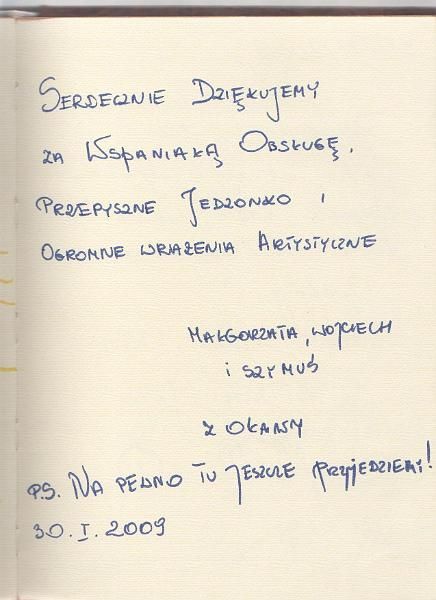 SERDECZNIE DZIĘKUJEMY
ZA WSPANIAŁĄ OBSŁUGĘ,
PRZEPYSZNE JEDZONKO I
OGROMNE WRAŻENIA ARTYSTYCZNE
MAŁGORZATA, WOJCIECH
I SZYMUŚ
Z OŁAWY
P.S. NA PEWNO TU JESZCZE PRZYJEDZIEMY!
30.I.2009